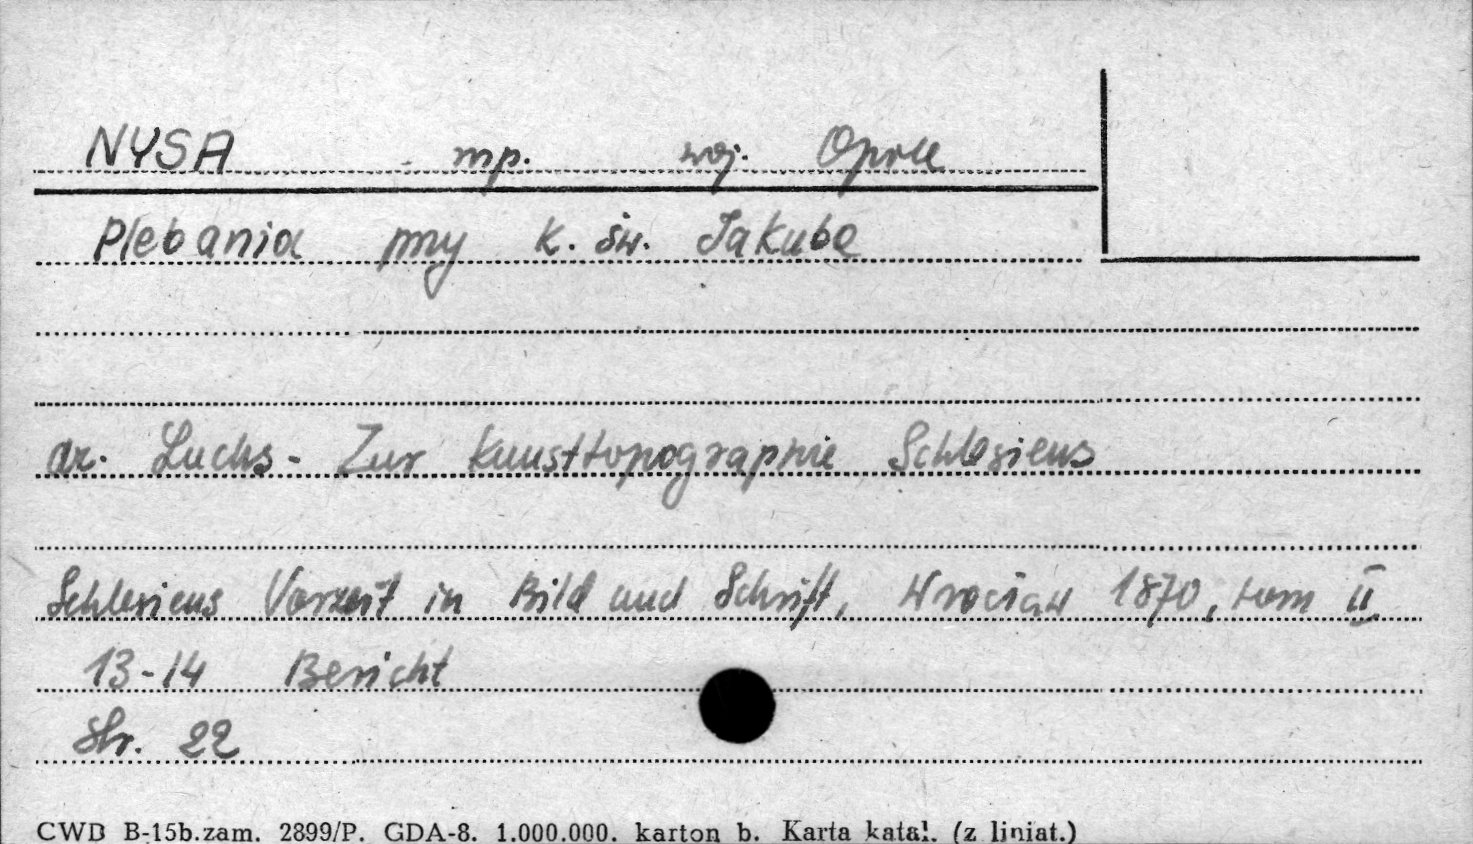 NYSA mp. woj. Opole
Plebania przy k. św. Jakuba
dr. Luchs - Zur Kunsttopographie Schlesiens
Schlesiens Vorzeit in Bild und Schrift, Wrocław 1870, tom II
13-14 Bericht
Str. 22
CWD B-15b.zam. 2899/P. GDA-8. 1.000.000. karton b. Karta katal. (z liniat.)